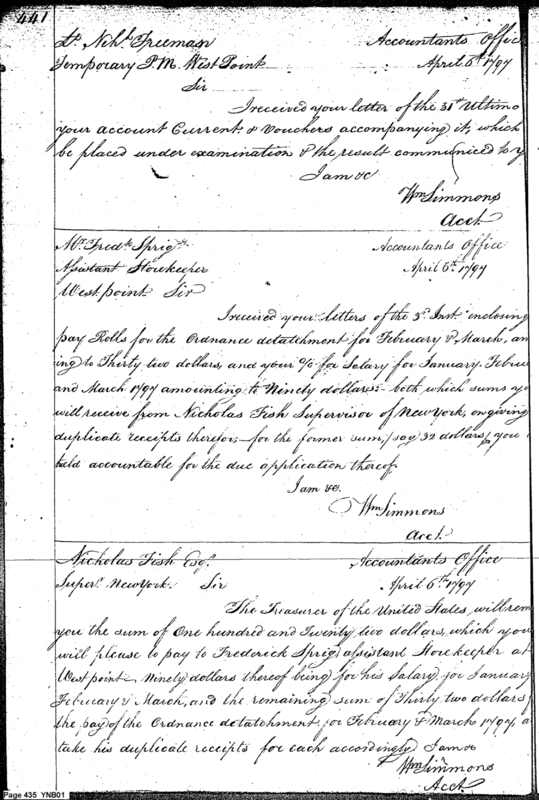 441
Lt. Nehh. Freeman Accountants Offic
Temporary P.M. West Point April 6th. 1797
Sir
I received your letter of the 31st Ultimo
your account Current & Vouchers accompanying it, which
be placed under examination & the result communiced to y
I am &c
Wm Simmons
Acct.
Mr. Fredk. Sprig Accountants Office
Assistant Storekeeper April 6th. 1797
West point Sir
I received your letters of the 3d. Inst. enclosing
pay Rolls for the Ordnance detatchment for February & March, am
ing to Thirty two dollars, and your a/c for Salary for January. Februa
and March 1797 amounting to Ninety dollars:- both which sums yo
will receive from Nicholas Fish Supervisor of New York, on giving
duplicate receipts therefor,- for the former sum, (say 32 dollars) you
held accountable for the due application thereof.
I am &c.
Wm Simmons
Acct.
Nicholas Fish Esqr. Accountants Office
Super. New York. Sir April 6th. 1797
The Treasurer of the United States, will rem
you the sum of One hundred and Twenty two dollars, which you
will please to pay to Frederick Sprig assistant Storekeeper at
West point, Ninety dollars thereof being for his Salary for January
February & March, and the remaining sum of Thirty two dollars
the pay of the Ordnance detatchment for February & March 1797, a
take his duplicate receipts for each accordingly I am &c
Wm Simmons
Acct.
Page 435 YNB01